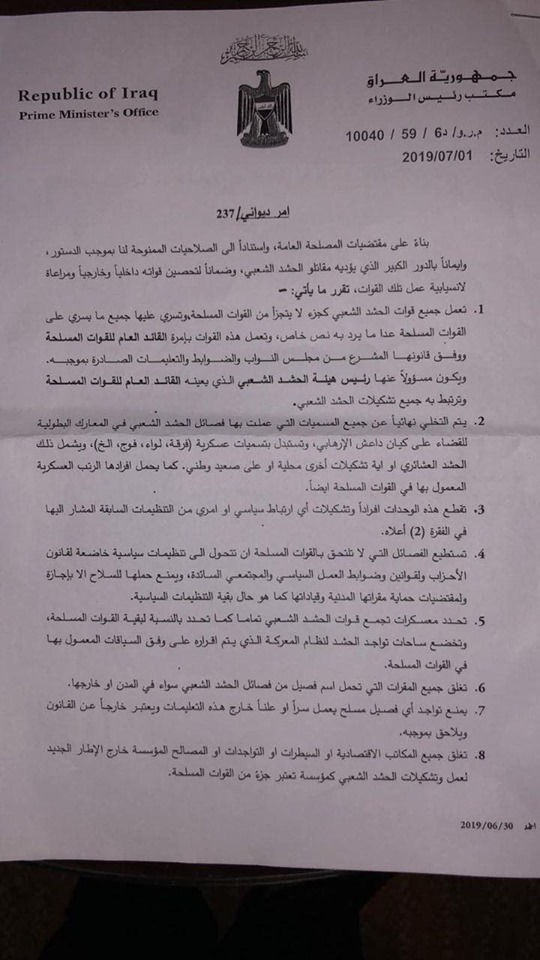 بسم الله الرحمن الرحيم
جمهورية العراق
مكتب رئيس الوزراء
Republic of Iraq
Prime Minister's Office
العدد: م.ر.و/ د6 / 59 / 10040
التاريخ: 2019/07/01
امر ديواني/237
بناءً على مقتضيات المصلحة العامة، واستناداً الى الصلاحيات الممنوحة لنا بموجب الدستور،
وايماناً بالدور الكبير الذي يؤديه مقاتلو الحشد الشعبي، وضماناً لتحصين قواته داخلياً وخارجياً ومراعاة
لانسيابية عمل تلك القوات، تقرر ما يأتي: –
1. تعمل جميع قوات الحشد الشعبي كجزء لا يتجزأ من القوات المسلحة،وتسري عليها جميع ما يسري على
القوات المسلحة عدا ما يرد به نص خاص، وتعمل هذه القوات بإمرة القائد العام للقوات المسلحة
ووفق قانونها المشرع من مجلس النواب والضوابط والتعليمات الصادرة بموجبه.
ويكون مسؤولاً عنها رئيس هيئة الحشد الشعبي الذي يعينه القائد العام للقوات المسلحة
وترتبط به جميع تشكيلات الحشد الشعبي.
2. يتم التخلي نهائياً عن جميع المسميات التي عملت بها فصائل الحشد الشعبي في المعارك البطولية
للقضاء على كيان داعش الإرهابي، وتستبدل بتسميات عسكرية (فرقة، لواء، فوج، الخ)، ويشمل ذلك
الحشد العشائري او اية تشكيلات أخرى محلية او على صعيد وطني. كما يحمل افرادها الرتب العسكرية
المعمول بها في القوات المسلحة ايضاً.
3. تقطع هذه الوحدات افراداً وتشكيلات أي ارتباط سياسي او امري من التنظيمات السابقة المشار اليها
في الفقرة (2) أعلاه.
4. تستطيع الفصائل التي لا تلتحق بالقوات المسلحة ان تتحول الى تنظيمات سياسية خاضعة لقانون
الأحزاب ولقوانين وضوابط العمل السياسي والمجتمعي السائدة، ويمنع حملها للسلاح الا بإجازة
ولمقتضيات حماية مقراتها المدنية وقياداتها كما هو حال بقية التنظيمات السياسية.
5. تحدد معسكرات تجمع قوات الحشد الشعبي تماما كما تحدد بالنسبة لبقية القوات المسلحة،
وتخضع ساحات تواجد الحشد لنظام المعركة الذي يتم اقراره على وفق السياقات المعمول بها
في القوات المسلحة.
6. تغلق جميع المقرات التي تحمل اسم فصيل من فصائل الحشد الشعبي سواء في المدن او خارجها.
7. يمنع تواجد أي فصيل مسلح يعمل سراً او علناً خارج هذه التعليمات ويعتبر خارجاً عن القانون
ويلاحق بموجبه.
8. تغلق جميع المكاتب الاقتصادية او السيطرات او التواجدات او المصالح المؤسسة خارج الإطار الجديد
لعمل وتشكيلات الحشد الشعبي كمؤسسة تعتبر جزء من القوات المسلحة.
2019/06/30